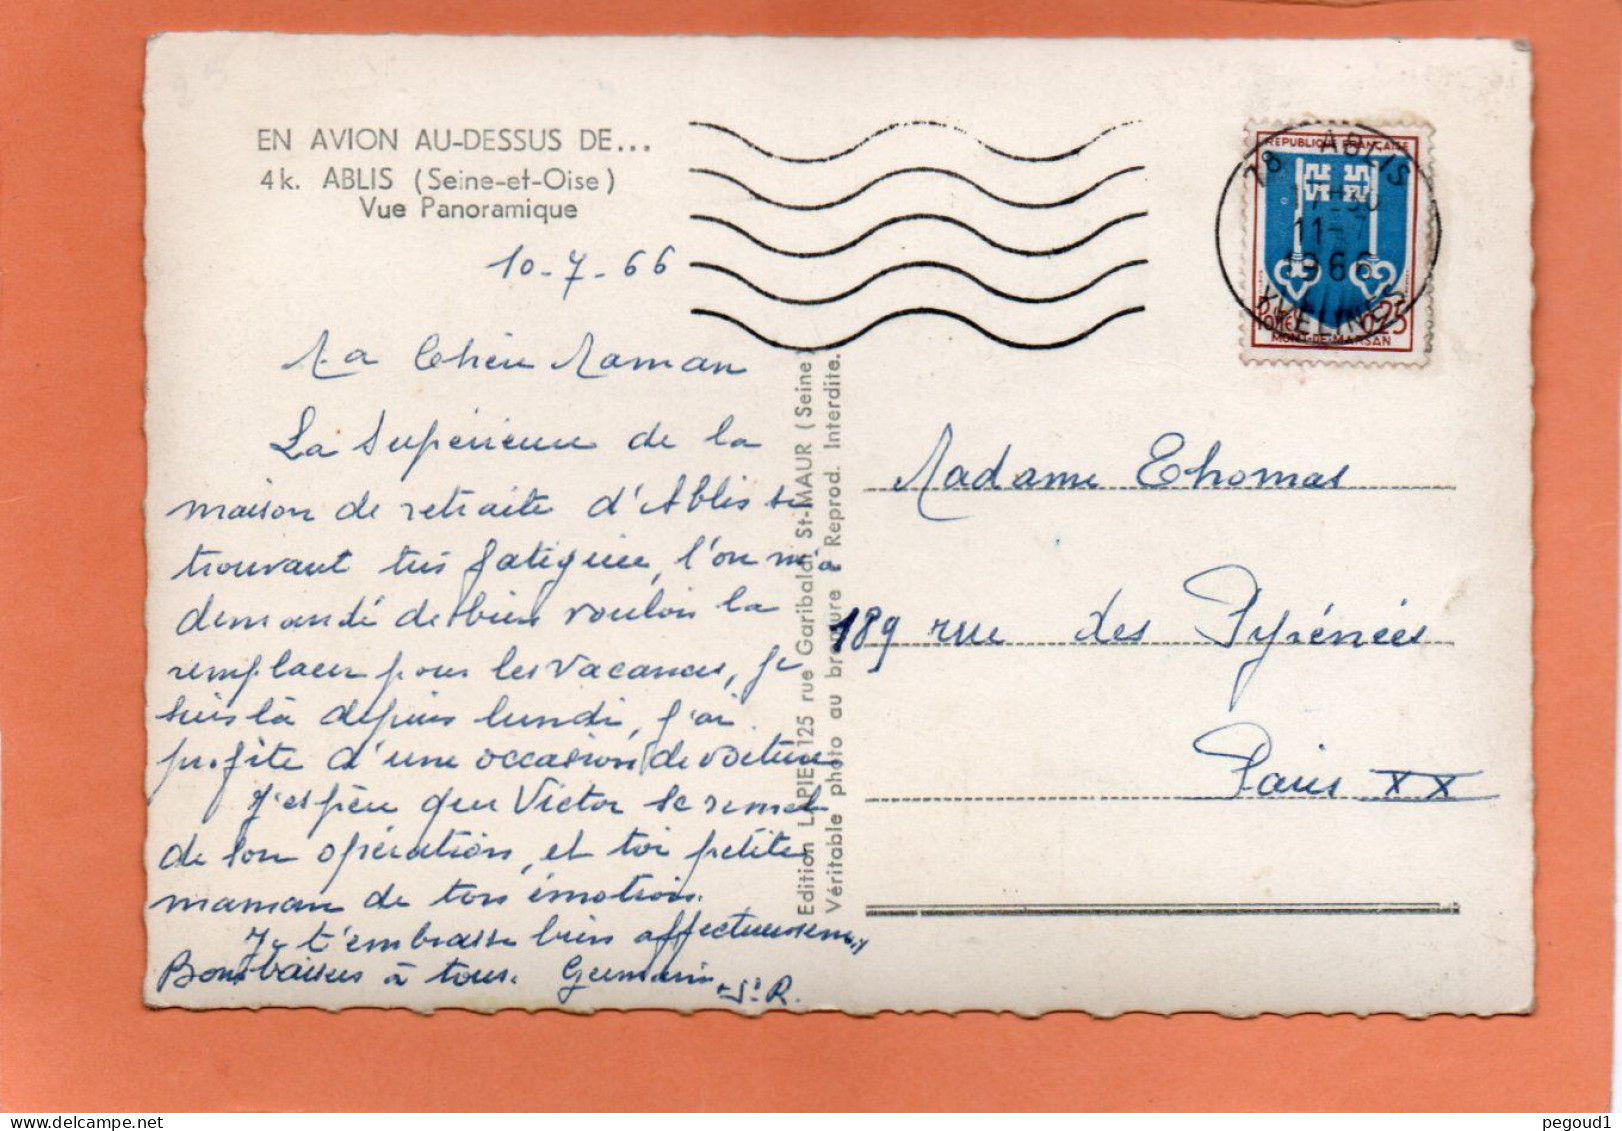 EN AVION AU-DESSUS DE...
4 k. ABLIS (Seine-et-Oise)
Vue Panoramique
10-7-66
Ma Chère Maman
La Supérieure de la
maison de retraite d'Ablis se
trouvant très fatiguée, l'on m'a
demandé de bien vouloir la
remplacer pour les vacances, je
suis là depuis lundi, j'ai
profité d'une occasion de voiture
J'espère que Victor se remet
de son opération, et toi petite
maman de tes émotions.
Je t'embrasse bien affectueusement
Bons baisers à tous. Germaine
Sr R.
Edition LAPIE 125 rue Garibaldi St-MAUR (Seine)
Véritable photo au bromure Reprod. Interdite.
REPUBLIQUE FRANÇAISE
POSTES 0,25
MONT-DE-MARSAN
78 ABLIS
17-30
11-7
1966
YVELINES
Madame Thomas
189 rue des Pyrénées
Paris XX
pegoud1